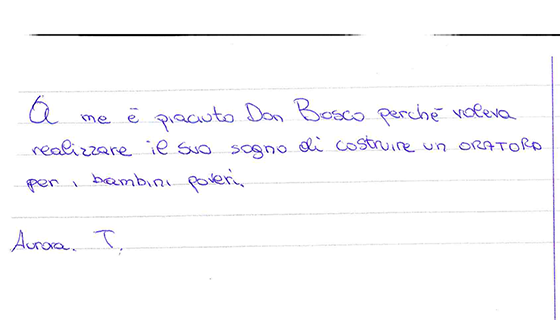 A me è piaciuto Don Bosco perché voleva
realizzare il suo sogno di costruire un ORATORO
per i bambini poveri.
Aurora. T.